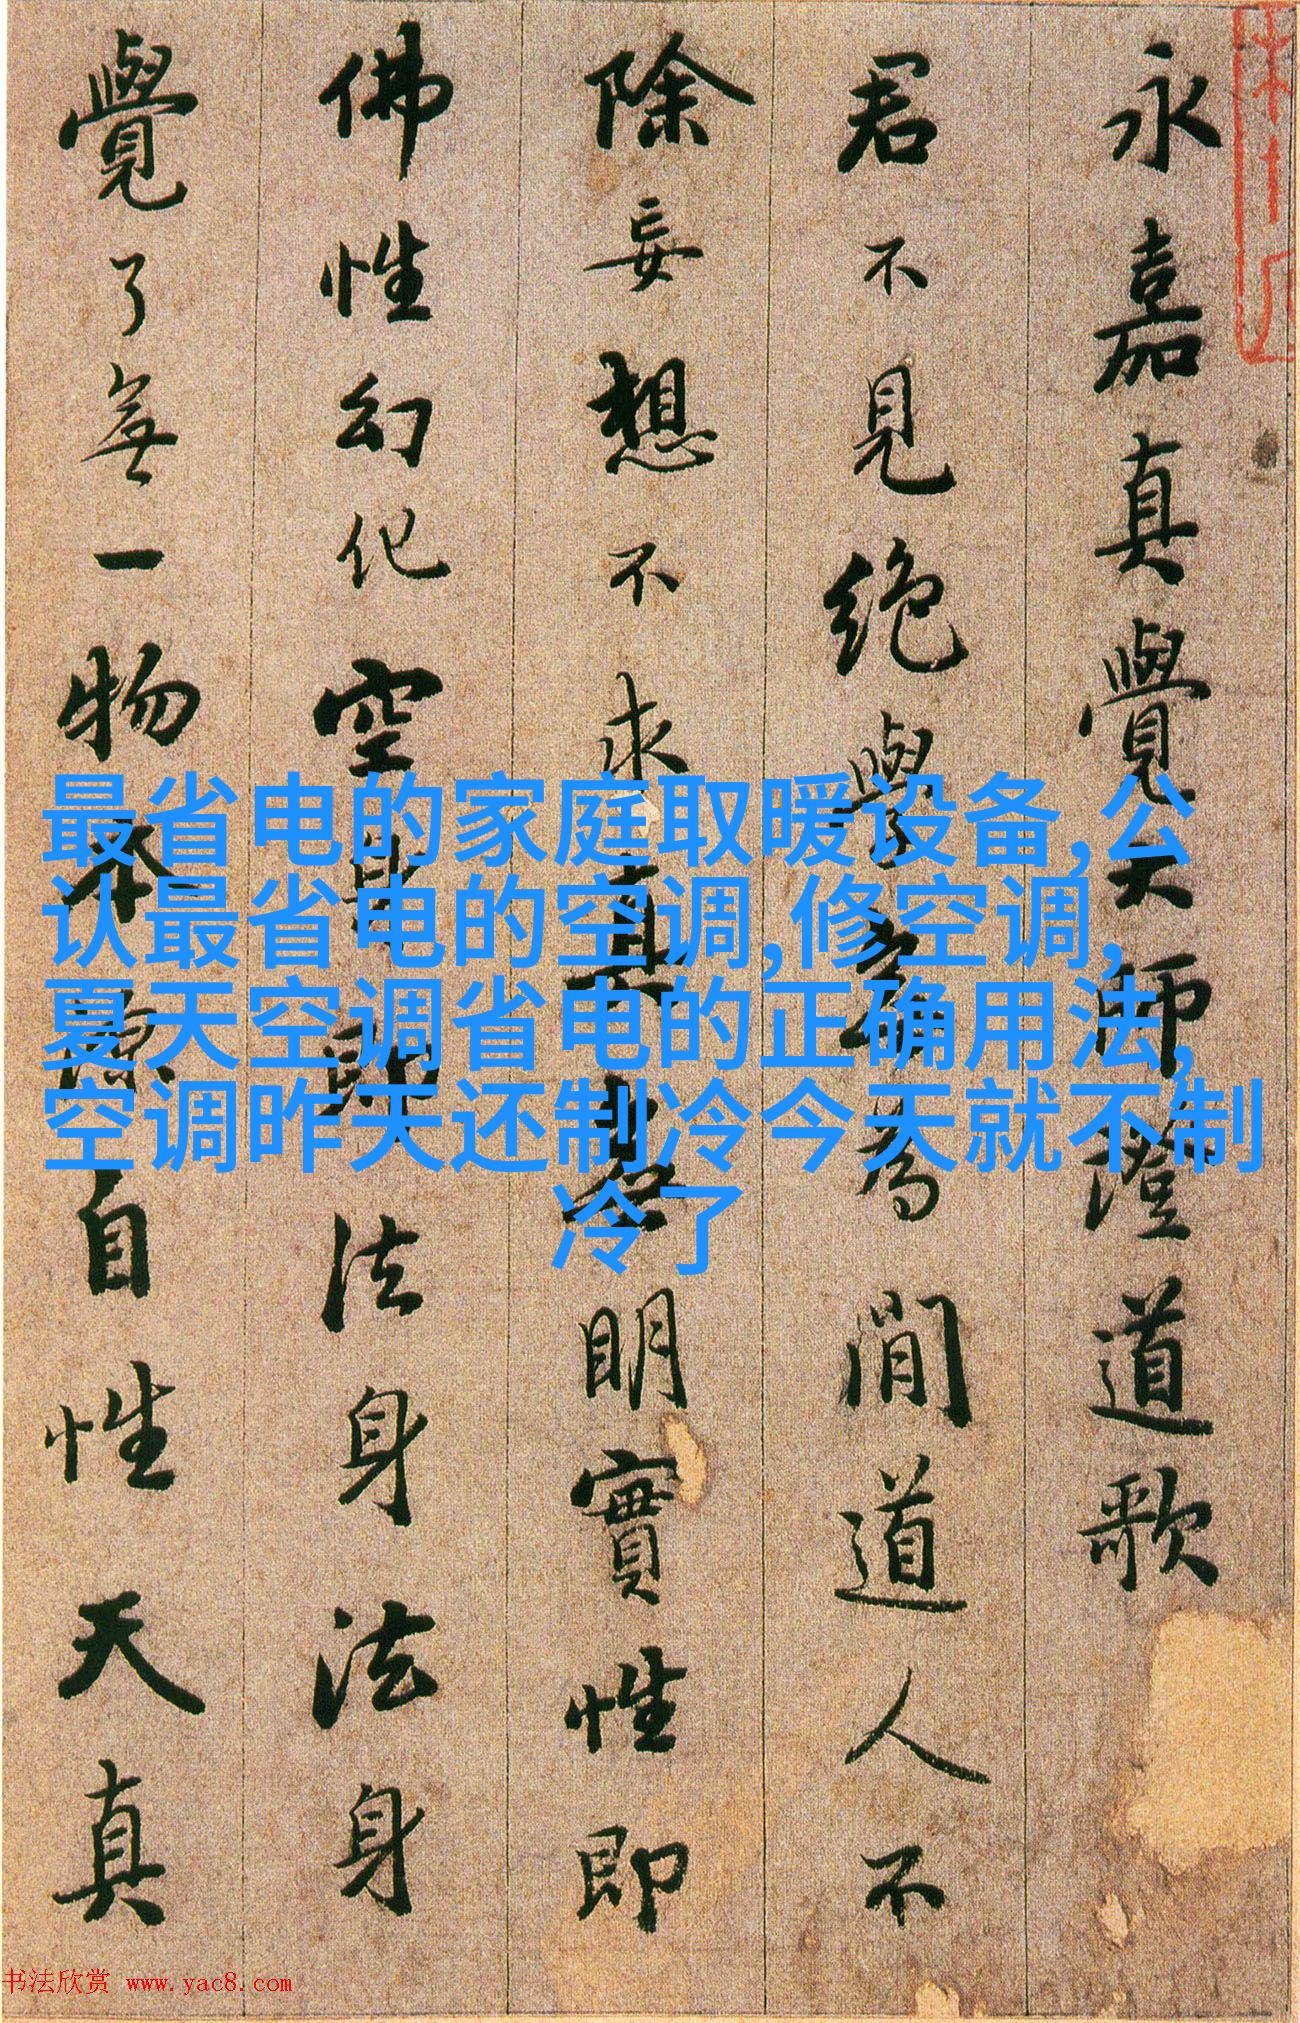 永嘉真覺大師證道歌
君不見絕學無為閒道人不
除妄想不求真無明實性即
佛性幻化空身即法身法身
覺了無一物本源自性天真
最省电的家庭取暖设备,公
认最省电的空调,修空调,
夏天空调省电的正确用法,
空调昨天还制冷今天就不制
冷了
书法欣赏 www.yac8.com